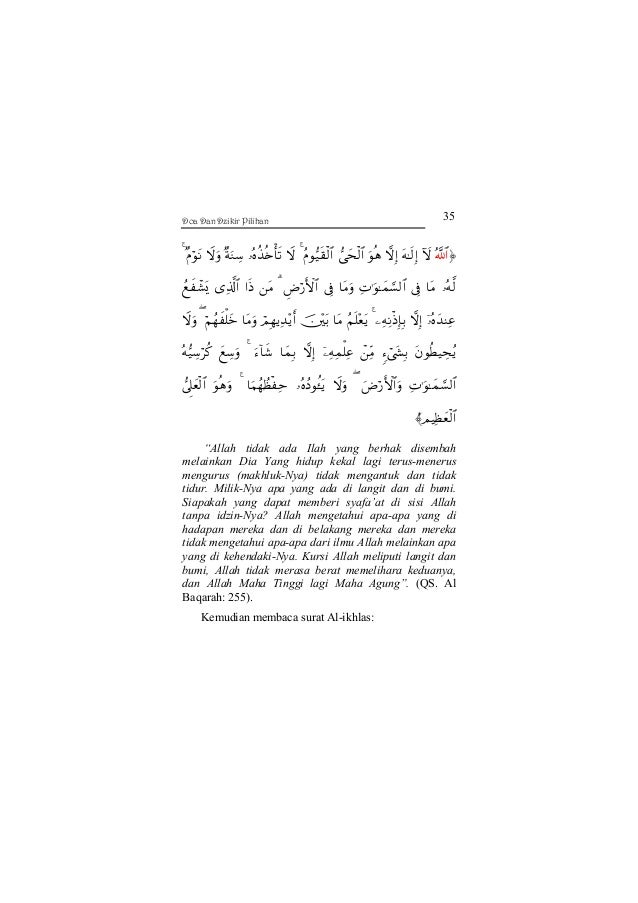 Doa Dan Dzikir Pilihan 35
﴿ٱللَّهُ لَآ إِلَـٰهَ إِلَّا هُوَ ٱلْحَىُّ ٱلْقَيُّومُ ۚ لَا تَأْخُذُهُۥ سِنَةٌ وَلَا نَوْمٌ ۚ
لَّهُۥ مَا فِى ٱلسَّمَـٰوَٰتِ وَمَا فِى ٱلْأَرْضِ ۗ مَن ذَا ٱلَّذِى يَشْفَعُ
عِندَهُۥٓ إِلَّا بِإِذْنِهِۦ ۚ يَعْلَمُ مَا بَيْنَ أَيْدِيهِمْ وَمَا خَلْفَهُمْ ۖ وَلَا
يُحِيطُونَ بِشَىْءٍ مِّنْ عِلْمِهِۦٓ إِلَّا بِمَا شَآءَ ۚ وَسِعَ كُرْسِيُّهُ
ٱلسَّمَـٰوَٰتِ وَٱلْأَرْضَ ۖ وَلَا يَـُٔودُهُۥ حِفْظُهُمَا ۚ وَهُوَ ٱلْعَلِىُّ
ٱلْعَظِيمُ﴾
“Allah tidak ada Ilah yang berhak disembah
melainkan Dia Yang hidup kekal lagi terus-menerus
mengurus (makhluk-Nya) tidak mengantuk dan tidak
tidur. Milik-Nya apa yang ada di langit dan di bumi.
Siapakah yang dapat memberi syafa’at di sisi Allah
tanpa idzin-Nya? Allah mengetahui apa-apa yang di
hadapan mereka dan di belakang mereka dan mereka
tidak mengetahui apa-apa dari ilmu Allah melainkan apa
yang di kehendaki-Nya. Kursi Allah meliputi langit dan
bumi, Allah tidak merasa berat memelihara keduanya,
dan Allah Maha Tinggi lagi Maha Agung”. (QS. Al
Baqarah: 255).
Kemudian membaca surat Al-ikhlas: